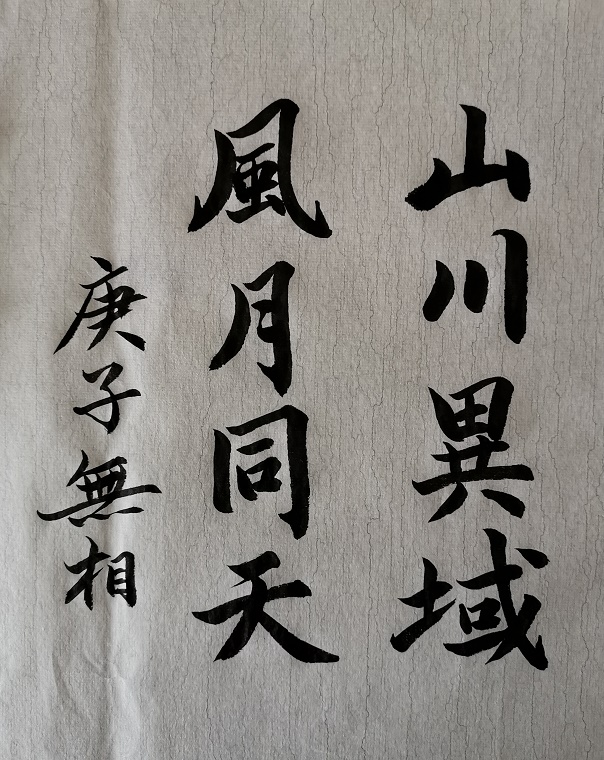 山川異域
風月同天
庚子無相